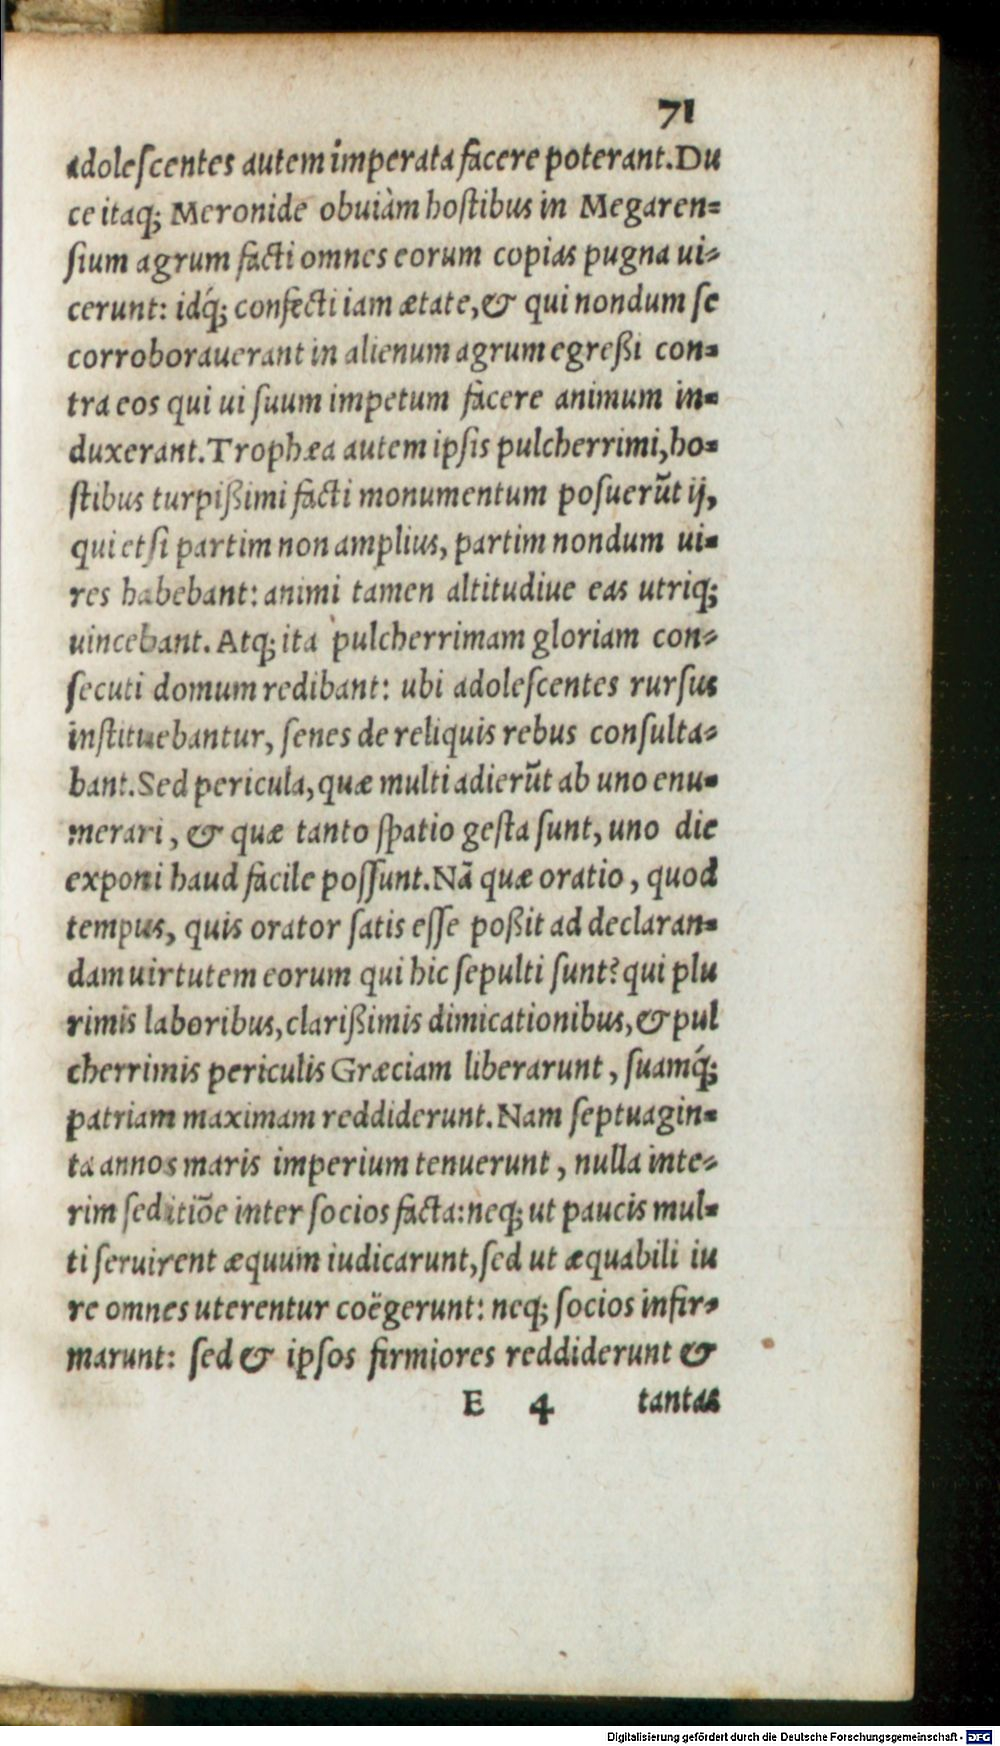 71
adoleſcentes autem imperata facere poterant. Du
ce itaq; Meronide obuiàm hoſtibus in Megaren=
ſium agrum facti omnes eorum copias pugna ui=
cerunt: idq́; confecti iam ætate, & qui nondum ſe
corroborauerant in alienum agrum egreßi con=
tra eos qui ui ſuum impetum facere animum in=
duxerant. Trophæa autem ipſis pulcherrimi, ho=
ſtibus turpißimi facti monumentum poſuerūt ij,
qui etſi partim non amplius, partim nondum ui=
res habebant: animi tamen altitudiue eas utriq;
uincebant. Atq; ita pulcherrimam gloriam con=
ſecuti domum redibant: ubi adoleſcentes rurſus
inſtituebantur, ſenes de reliquis rebus conſulta=
bant. Sed pericula, quæ multi adierūt ab uno enu=
merari, & quæ tanto ſpatio geſta ſunt, uno die
exponi haud facile poſſunt. Nā quæ oratio, quod
tempus, quis orator ſatis eſſe poßit ad declaran=
dam uirtutem eorum qui hic ſepulti ſunt? qui plu
rimis laboribus, clarißimis dimicationibus, & pul
cherrimis periculis Græciam liberarunt, ſuamq́;
patriam maximam reddiderunt. Nam ſeptuagin=
ta annos maris imperium tenuerunt, nulla inte=
rim ſeditiōe inter ſocios facta: neq; ut paucis mul=
ti ſeruirent æquum iudicarunt, ſed ut æquabili iu
re omnes uterentur coëgerunt: neq; ſocios infir=
marunt: ſed & ipſos firmiores reddiderunt &
E 4 tantas
Digitalisierung gefördert durch die Deutsche Forschungsgemeinschaft - DFG